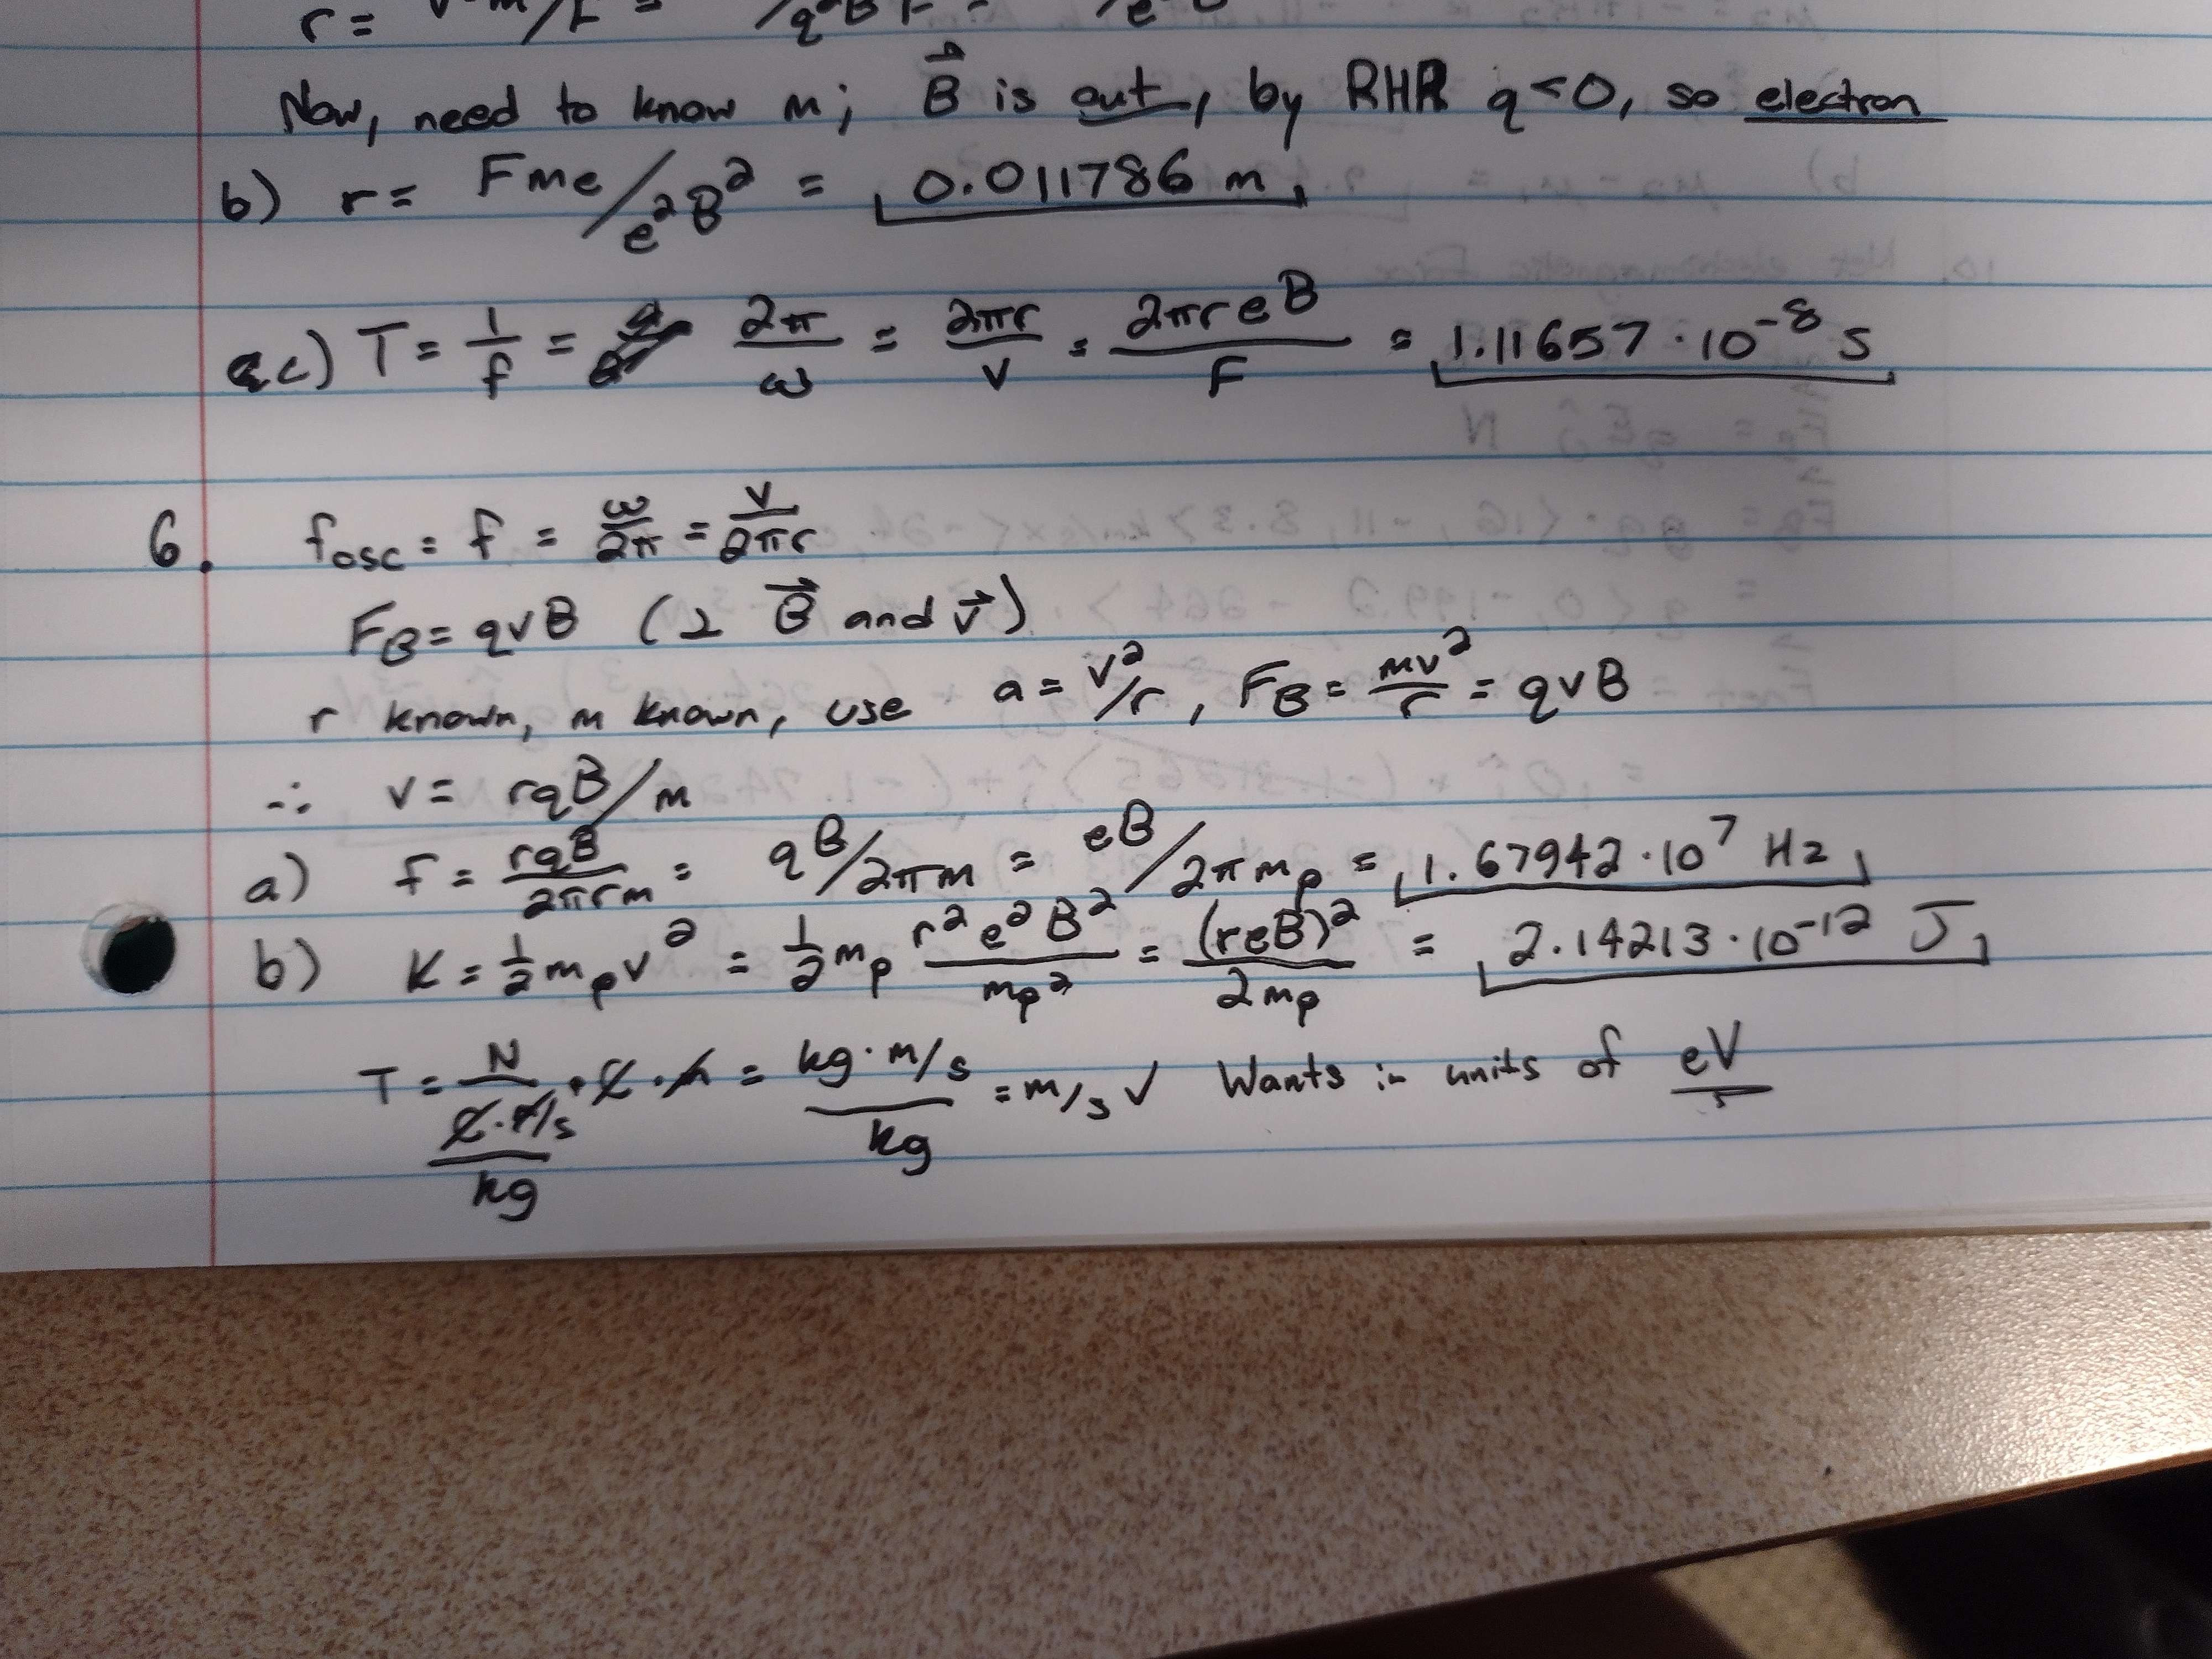 r =
Now, need to know m; B⃗ is out, by RHR q<0, so electron
b) r = Fme/e²B² = 0.011786 m
c) T = 1/f = 2π/ω = 2πr/v = 2πreB/F = 1.11657·10⁻⁸ s
6. fosc = f = ω/2π = v/2πr
FB = qvB (⊥ B⃗ and v⃗)
r known, m known, use a = v²/r, FB = mv²/r = qvB
∴ v = rqB/m
a) f = rqB/2πrm = qB/2πm = eB/2πmp = 1.67942·10⁷ Hz
b) K = ½mpv² = ½mp r²e²B²/mp² = (reB)²/2mp = 2.14213·10⁻¹² J
T = N/C·m/s · C · m = kg·m/s / kg = m/s ✓ Wants in units of eV
kg